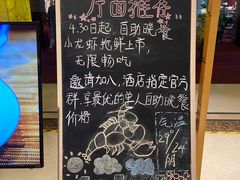 厅面推广
4.30日起,自助晚餐
小龙虾抢鲜上市,
无限畅吃
邀请加入,酒店指定官方
群,享最优的单人自助晚餐
价格
气温
29°/24°
阴